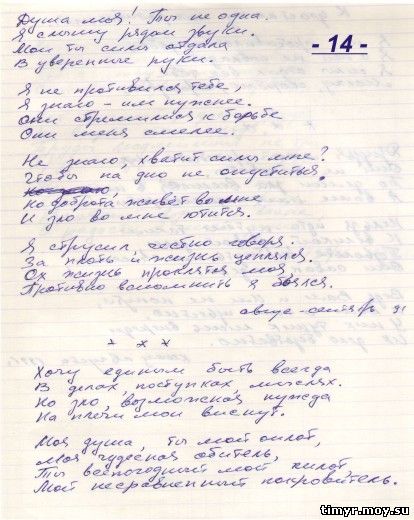 Душа моя! Ты не одна.
Я слышу рядом звуки.
Мои ты силы отдала
В уверенные руки.
- 14 -
Я не противился тебе,
Я знаю - им нужнее.
Они стремились к борьбе
Они меня смелее.
Не знаю, хватит силы мне?
Чтобы на дно не опуститься.
Но доброта живёт во мне
И зло во мне ютится.
Я струсил, честно говоря.
За плоть и жизнь цеплялся.
Ох жизнь проклятая моя,
Противно вспомнить я боялся.
август-сентябрь 91
* * *
Хочу единым быть всегда
В делах, поступках, мыслях.
Но зло, возможная нужда
На плечи мои виснут.
Моя душа, ты мой оплот,
Моя чудесная обитель,
Ты всепогодный мой пилот,
Мой несравненный покровитель.
timyr.moy.su